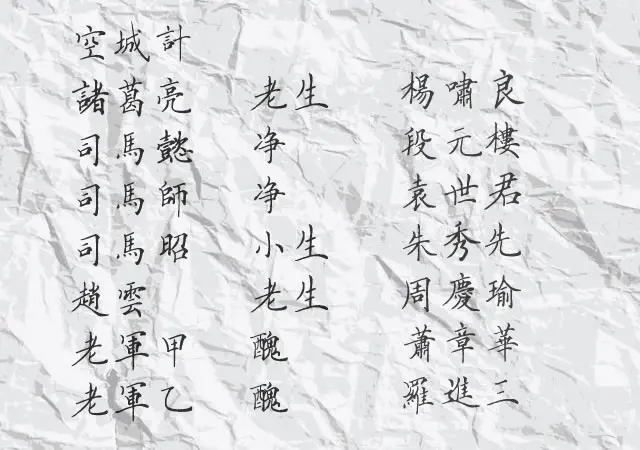 空城計
諸葛亮 老生 楊嘯良
司馬懿 净 段元樓
司馬師 净 袁世君
司馬昭 小生 朱秀先
趙雲 老生 周慶瑜
老軍甲 醜 蕭章華
老軍乙 醜 羅進三